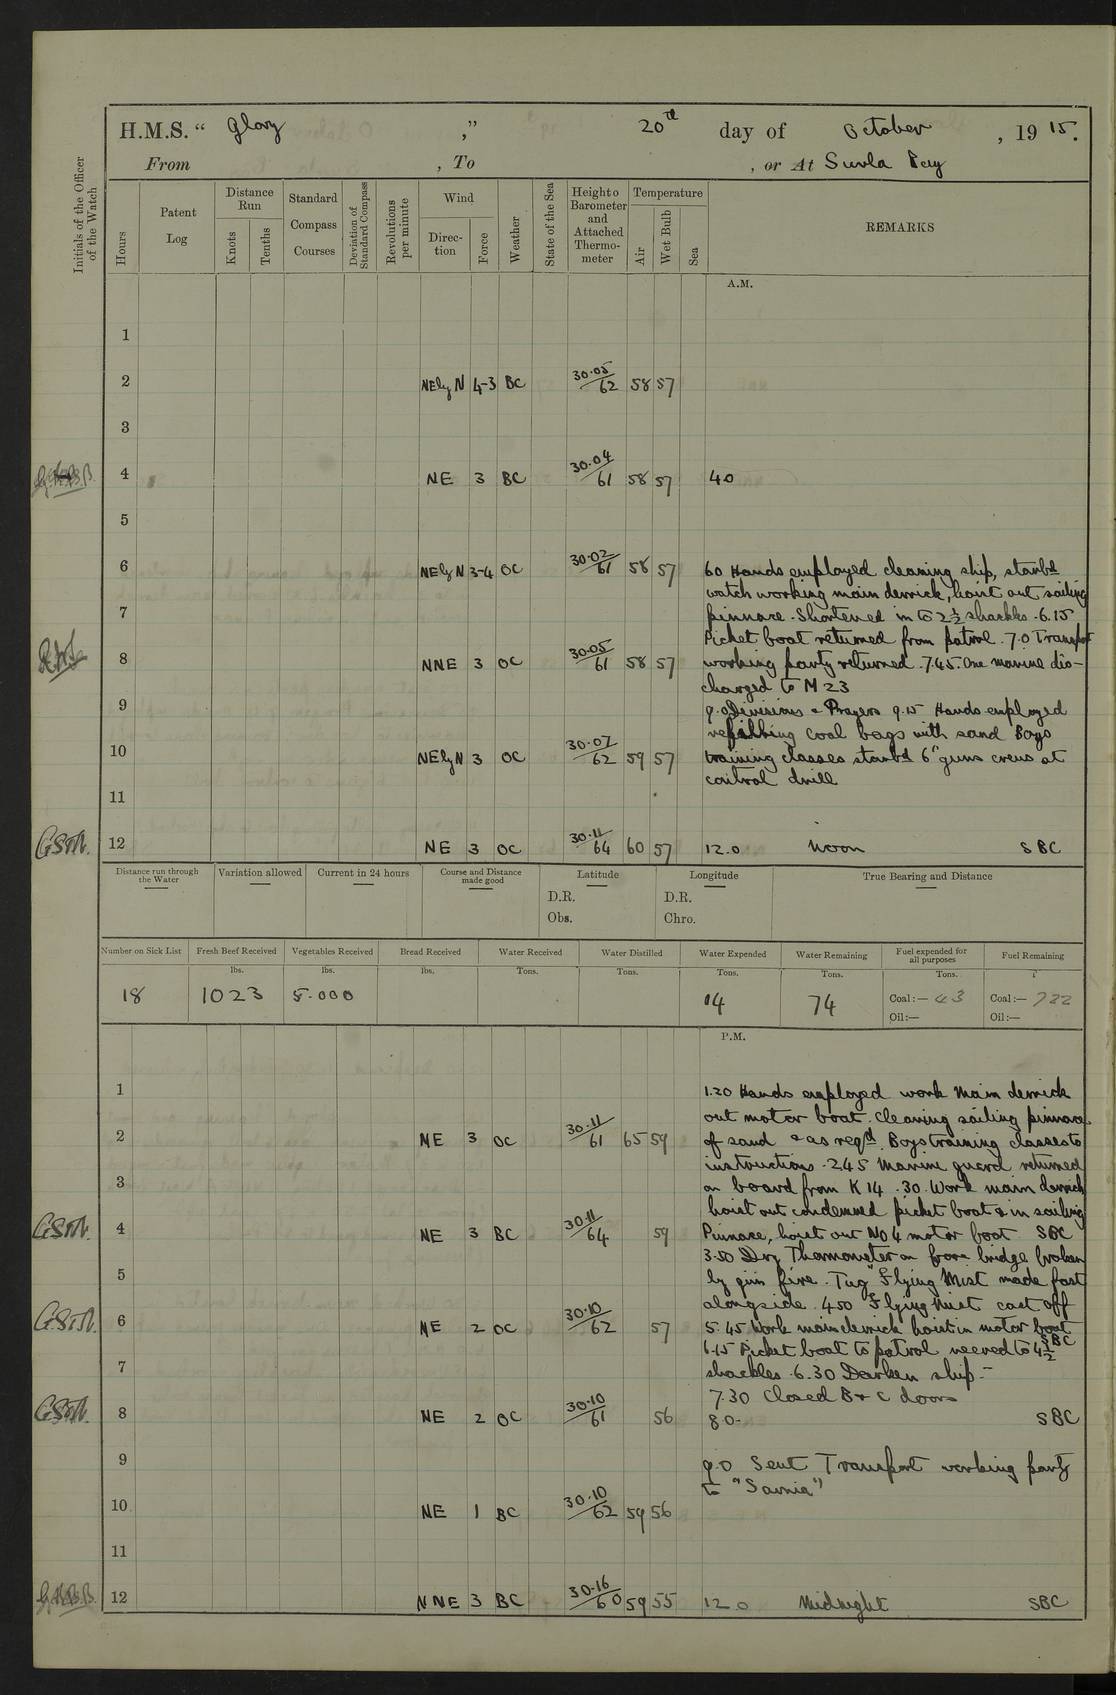 H.M.S. “ Glory ,” 20th day of October , 19 15.
From , To , or At Suvla Bay
Initials of the Officer of the Watch
Hours
Patent Log
Distance Run
Knots
Tenths
Standard Compass Courses
Deviation of Standard Compass
Revolutions per minute
Wind
Direc-tion
Force
Weather
State of the Sea
Height o Barometer and Attached Thermo-meter
Temperature
Air
Wet Bulb
Sea
REMARKS
A.M.
1
2 NEly N 4-3 BC 30.05/62 58 57
3
4 NE 3 BC 30.04/61 58 57 4 0
5
6 NEly N 3-4 OC 30.02/61 58 57
6 0 Hands employed cleaning ship, starbd
watch working main derrick, hoist out sailing
7
pinnace. Shortened in to 2½ shackles. 6.15
Picket boat returned from patrol. 7.0 Transport
8 NNE 3 OC 30.05/61 58 57
working party returned. 7.45. One marine dis-
charged to M 23
9
9.0 Divisions & Prayers 9.15 Hands employed
refilling coal bags with sand Boys
10 NEly N 3 OC 30.07/62 59 57
training classes starbd 6" guns crews at
control drill
11
12 NE 3 OC 30.11/64 60 57 12.0 Noon SBC
Distance run through the Water
Variation allowed
Current in 24 hours
Course and Distance made good
Latitude
D.R.
Obs.
Longitude
D.R.
Chro.
True Bearing and Distance
Number on Sick List
Fresh Beef Received
Vegetables Received
Bread Received
Water Received
Water Distilled
Water Expended
Water Remaining
Fuel expended for all purposes
Fuel Remaining
lbs. lbs. lbs. Tons. Tons. Tons. Tons. Tons.
18 1023 5.000 14 74 Coal :— 43 Coal :— 722
Oil :— Oil :—
P.M.
1
1.20 Hands employed work main derrick
out motor boat. Cleaning sailing pinnace
2 NE 3 OC 30.11/61 65 59
of sand & as reqd. Boys training classes to
instructions. 2.45 Marine guard returned
3
on board from K 14 .30. Work main derrick
hoist out condemned picket boat & in sailing
4 NE 3 BC 30.11/64 59
Pinnace, hoist out No 4 motor boat SBC
3.50 Dry Thermometer on fore bridge broken
5
by gun fire. Tug "Flying Mist made fast
alongside. 4.50 "Flying Mist cast off
6 NE 2 OC 30.10/62 57
5.45 Work main derrick hoist in motor boat
SBC
6.15 Picket boat to patrol veered to 4½
7
shackles. 6.30 Darken ship.-
7.30 Closed B & C doors
8 NE 2 OC 30.10/61 56 8 0- SBC
9
9.0 Sent Transport working party
to "Sarnia"
10 NE 1 BC 30.10/62 59 56
11
12 NNE 3 BC 30.16/60 59 55 12 0 Midnight SBC